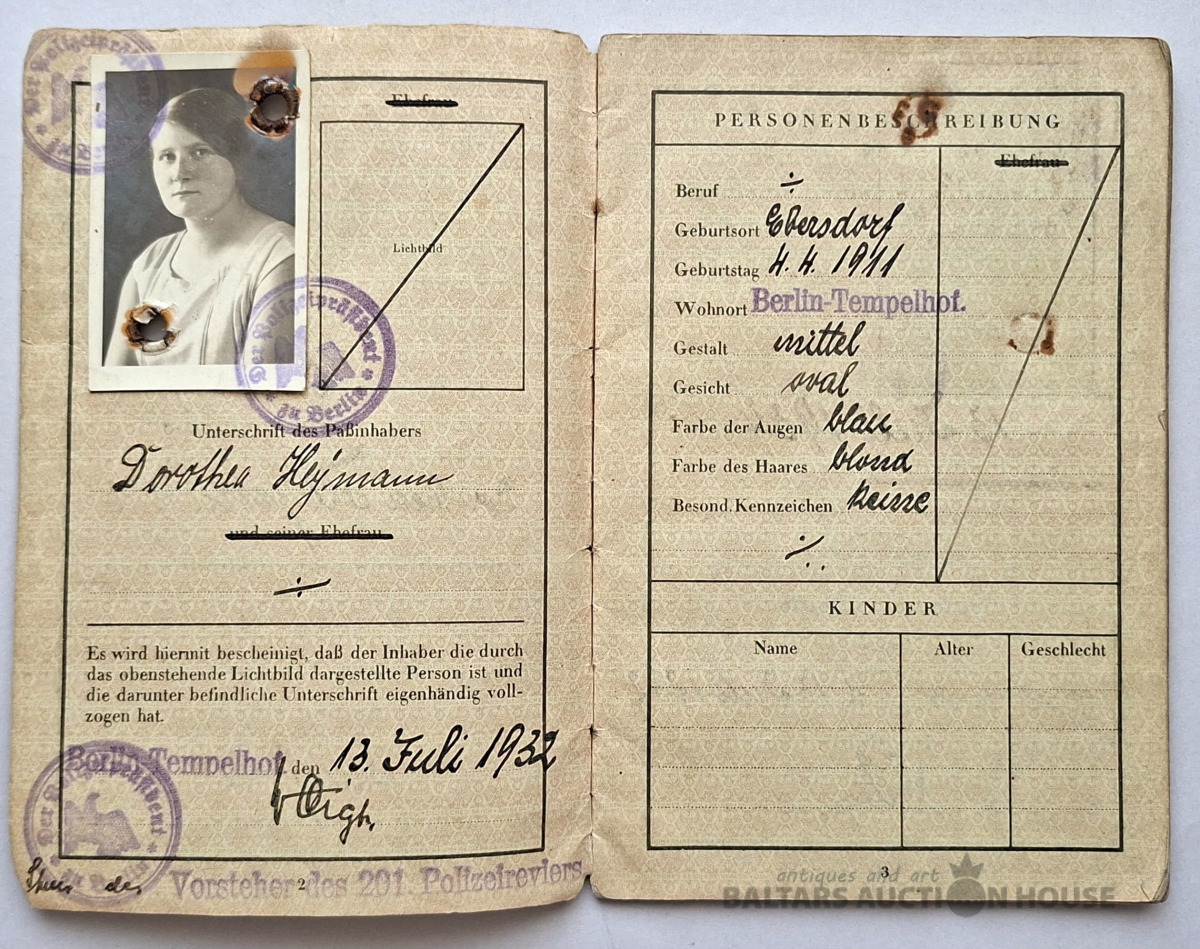 Der Polizeipräsident
zu Berlin
Ehefrau
Lichtbild
Der Polizeipräsident
zu Berlin
Unterschrift des Paßinhabers
Dorothea Heymann
und seiner Ehefrau
Es wird hiermit bescheinigt, daß der Inhaber die durch
das obenstehende Lichtbild dargestellte Person ist und
die darunter befindliche Unterschrift eigenhändig voll-
zogen hat.
Berlin-Tempelhof, den 13. Juli 1932
Der Polizeipräsident
zu Berlin
des Vorsteher des 201. Polizeireviers
2
PERSONENBESCHREIBUNG
Ehefrau
Beruf
Geburtsort Ebersdorf
Geburtstag 4. 4. 1911
Wohnort Berlin-Tempelhof.
Gestalt mittel
Gesicht oval
Farbe der Augen blau
Farbe des Haares blond
Besond. Kennzeichen keine
KINDER
Name Alter Geschlecht
3
antiques and art
BALTARS AUCTION HOUSE